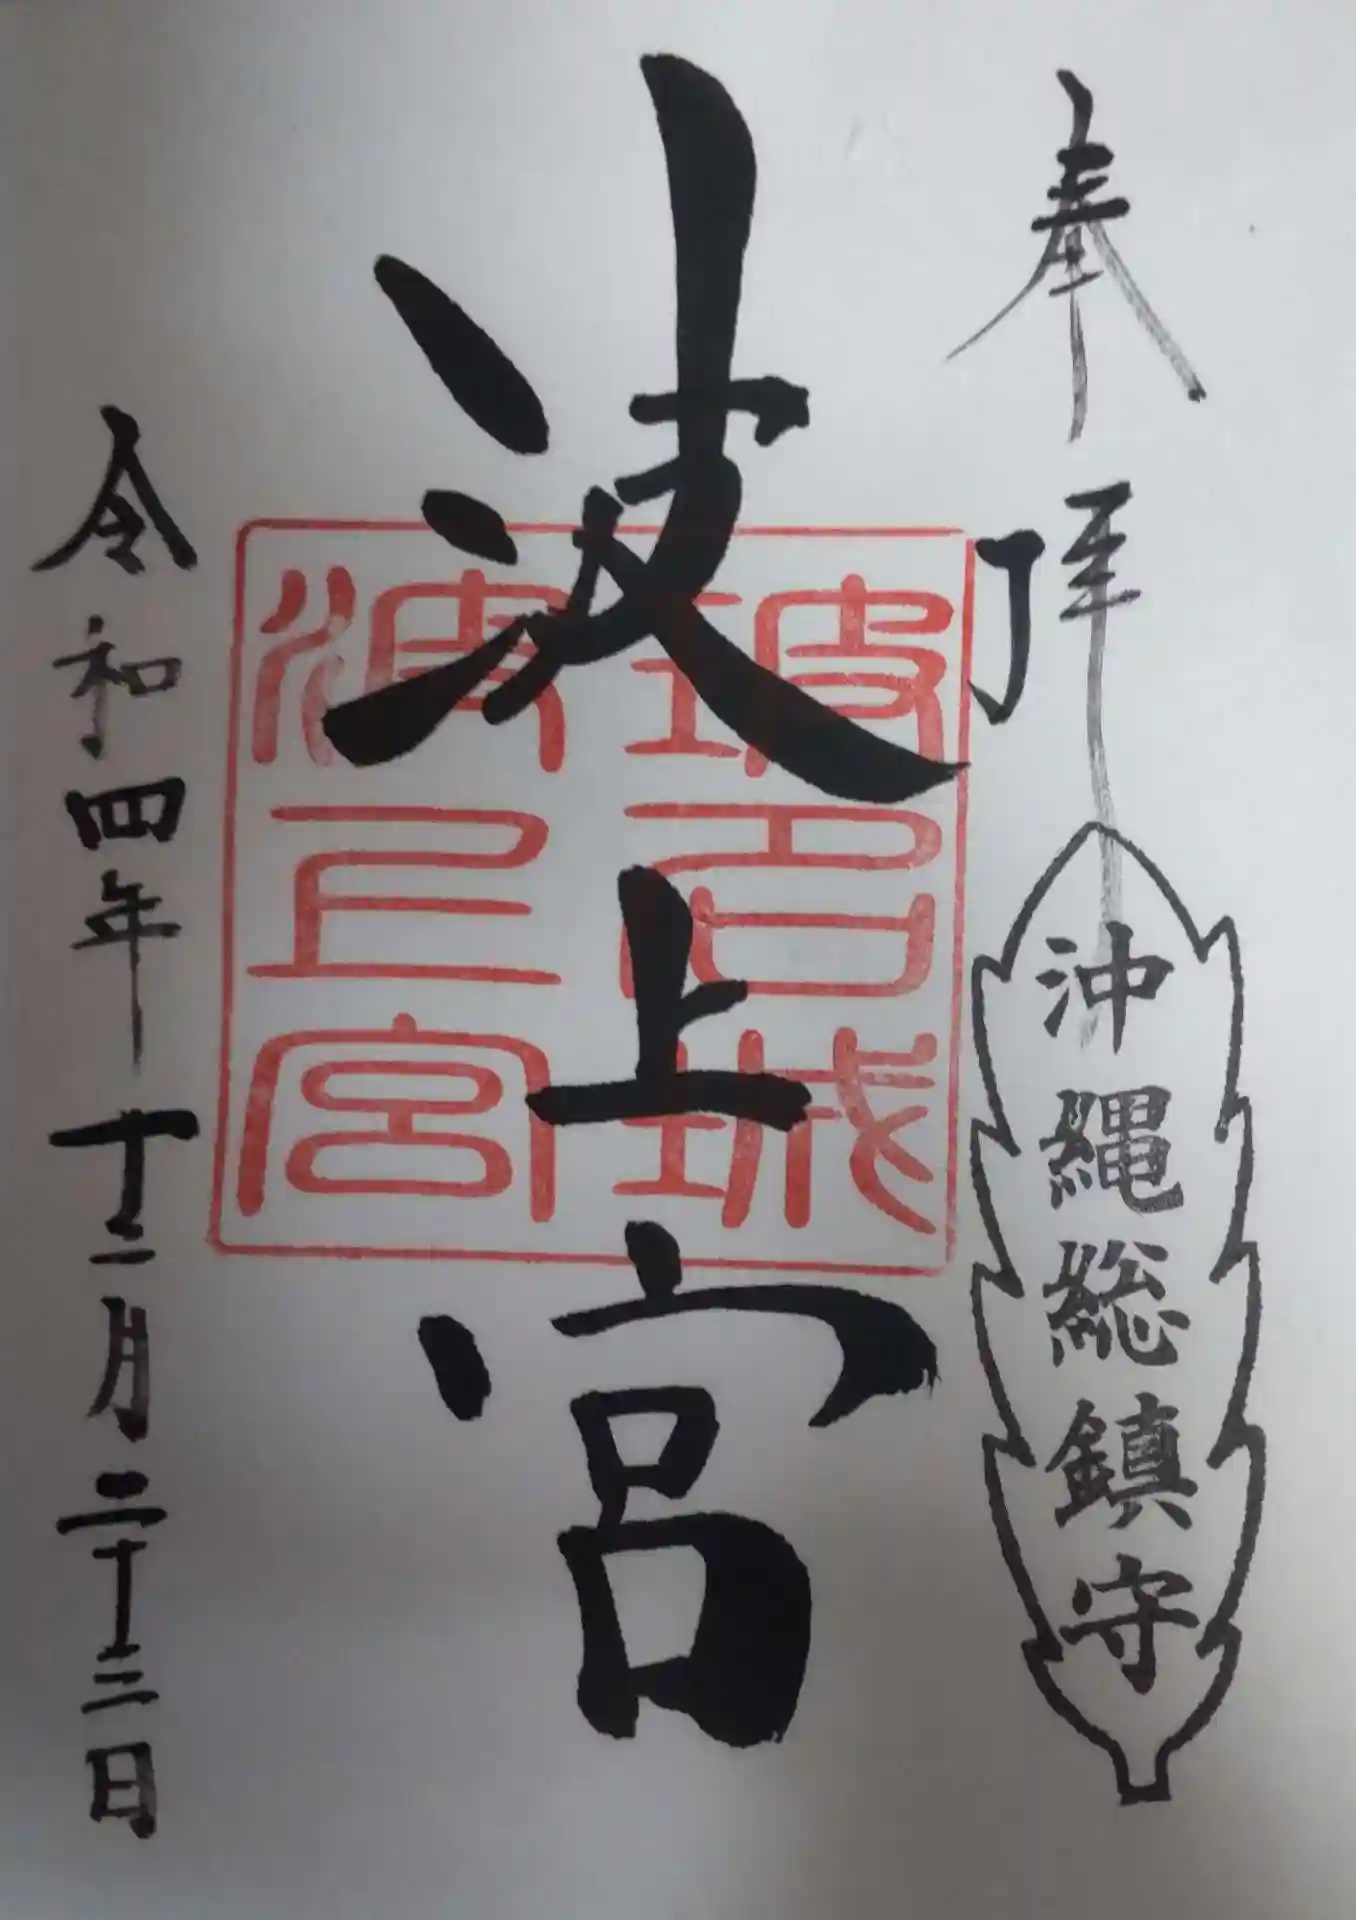 奉拝
沖縄総鎮守
波上宮
玻名城
波上宮
令和四年十二月二十三日